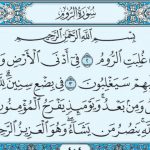 سُورَةُ الرُّومِ
بِسْمِ اللَّهِ الرَّحْمَٰنِ الرَّحِيمِ
غُلِبَتِ الرُّومُ ٢ فِي أَدْنَى الْأَرْضِ وَ
هِمْ سَيَغْلِبُونَ ٣ فِي بِضْعِ سِنِينَ
وَمِنْ بَعْدُ وَيَوْمَئِذٍ يَفْرَحُ الْمُؤْمِنُونَ
يَنْصُرُ مَنْ يَشَاءُ وَهُوَ الْعَزِيزُ